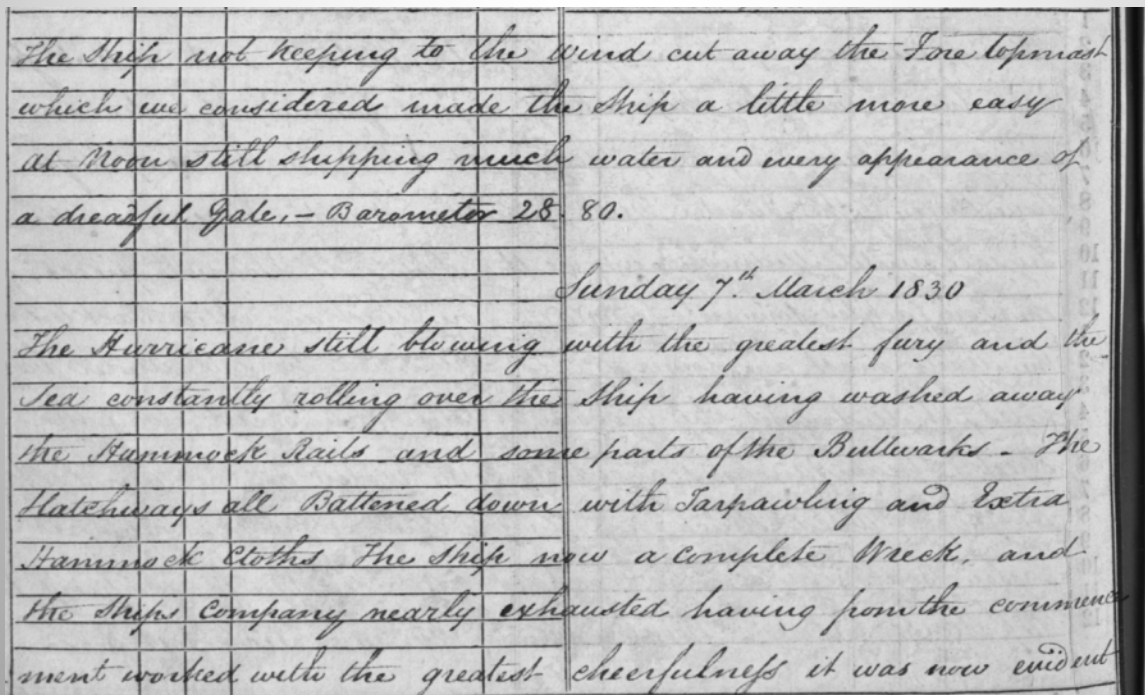 The Ship not keeping to the wind cut away the Fore topmast
which we considered made the Ship a little more easy
at Noon still shipping much water and every appearance of
a dreadful Gale, – Barometer 28. 80.
Sunday 7th. March 1830
The Hurricane still blowing with the greatest fury and the
Sea constantly rolling over the Ship having washed away
the Hammock Rails and some parts of the Bullwarks – The
Hatchways all Battened down with Tarpawling and Extra
Hammock Cloths The Ship now a complete Wreck, and
the Ships Company nearly exhausted having from the commence
ment worked with the greatest cheerfulness it was now evident